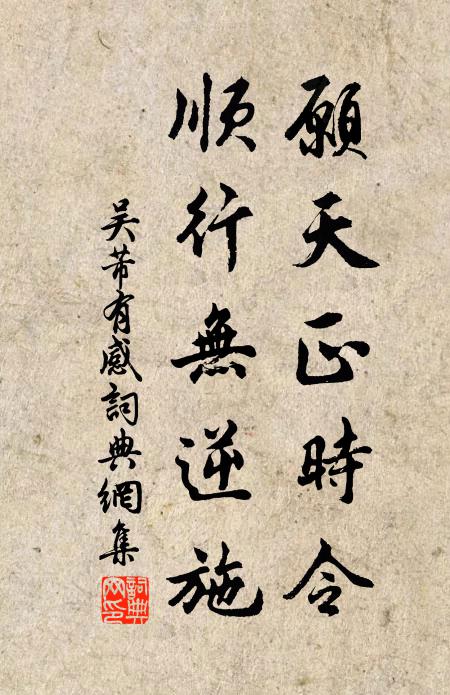 願天正時令
順行無逆施
吴芾有感詞典網集
詞典